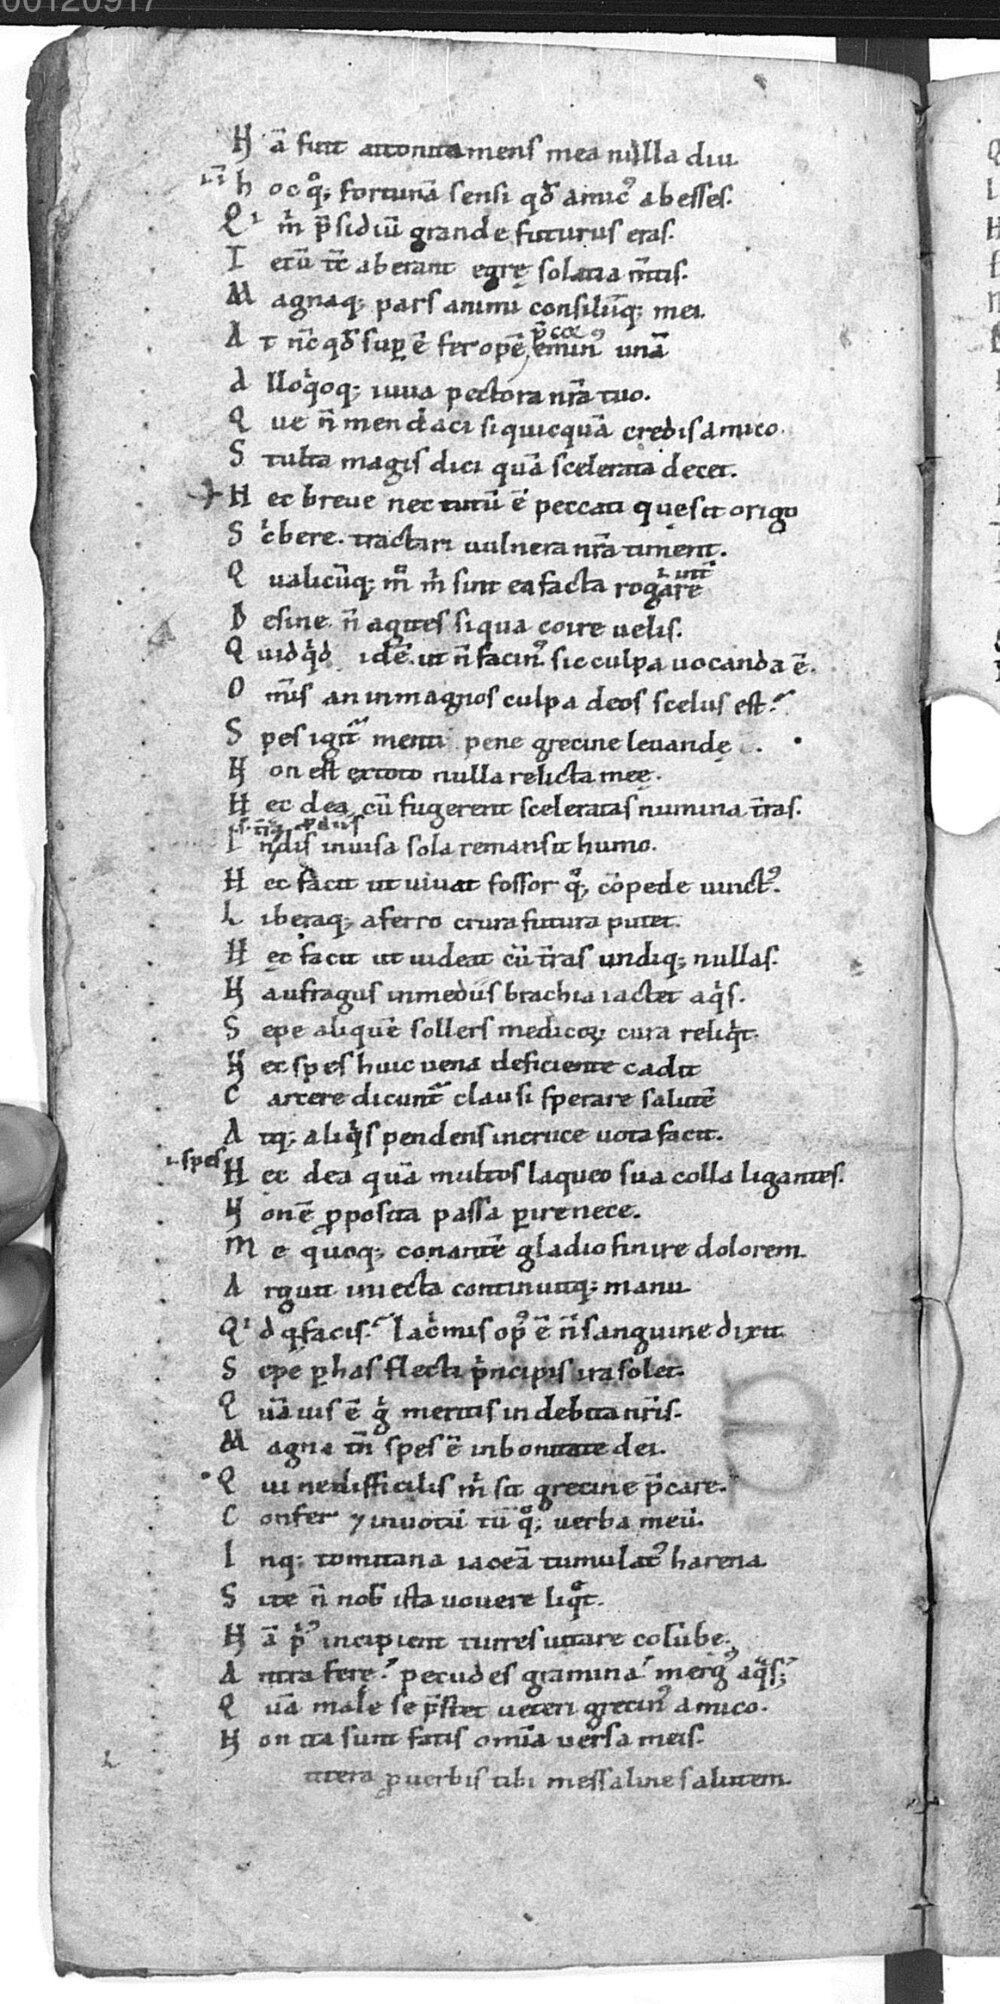 00120917
N ā fuit attonita mens mea nulla diu.
h oc qͦ; fortunā sensi qđ amicꝰ abesses.
Q i m̄ p̄sidiū grande futurus eras.
T etū tē aberant egrę solatia m̄tis.
M agnaq; pars animi consiliiq; mei.
A t nc̄ qđ sup ē fer opē unā
A lloq̊oq; iuua pectora nr̄a tuo.
Q ue n̄ mendaci si quicquā credis amico.
S tulta magis dici quā scelerata decet.
N ec breue nec tutū ē peccati quę sit origo
S c̊bere. tractari uulnera nr̄a timent.
Q ualicūq; m̊ m̄ sint ea facta rogare
D esine n̄ agites siqua coire uelis.
Q uidq̊d id ē. ut n̄ facinꝰ sic culpa uocanda ē.
O m̄is an in magnos culpa deos scelus est.
S pes igit̄ menti pene grecine leuandę.
N on est ex toto nulla relicta meę.
H ec dea cū fugerent sceleratas numina t̄ras.
I ndis inuisa sola remansit humo.
H ec facit ut uiuat fossor qͦ; cōpede uinctꝰ.
L iberaq; a ferro crura futura putet.
H ec facit ut uideat cū t̄ras undiq; nullas.
N aufragus in mediis brachia iactet aq̊s.
S epe aliquē sollers medicoꝝ cura reliq̊t.
N ec spes huic uena deficiente cadit
C arcere dicunt̄ clausi sperare salutē
A tq; aliq̊s pendens in cruce uota facit.
.i. spes
H ec dea quā multos laqueo sua colla ligantes.
N on ē ꝓposita passa ꝑire nece.
M e quoq; conantē gladio finire dolorem
A rguit iniecta continuitq; manu
Q i d q; facis. lac̊mis opꝰ ē n̄ sanguine dixit
S epe ꝑ has flecti p̊ncipis ira solet.
Q uāuis ē g̊ meritis indebita nr̄is.
M agna tn̄ spes ē in bonitate dei.
Q ui ne difficilis m̊ sit grecine p̄care.
C onfer ⁊ in uotū tū qͦ; uerba meū.
I nq; tomitana iaceā tumulatꝰ harena
S ite n̄ nob̄ ista uouere liq̊t.
N ā p̊ꝰ incipient turres uitare colūbe.
A ntra fere. pecudes gramina. mergꝰ aq̊s;
Q uā male se p̄stet ueteri grecinꝰ amico.
N on ita sunt fatis om̄ia uersa meis.
L
ittera ꝓ uerbis tibi messaline salutem.